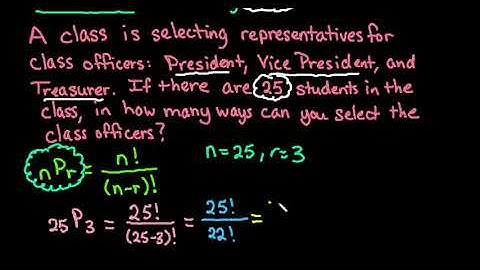 A class is selecting representatives for
class officers: President, Vice President, and
Treasurer. If there are 25 students in the
class, in how many ways can you select the
class officers?
nPr = n! / (n-r)!
n=25, r=3
25P3 = 25! / (25-3)! = 25! / 22! =